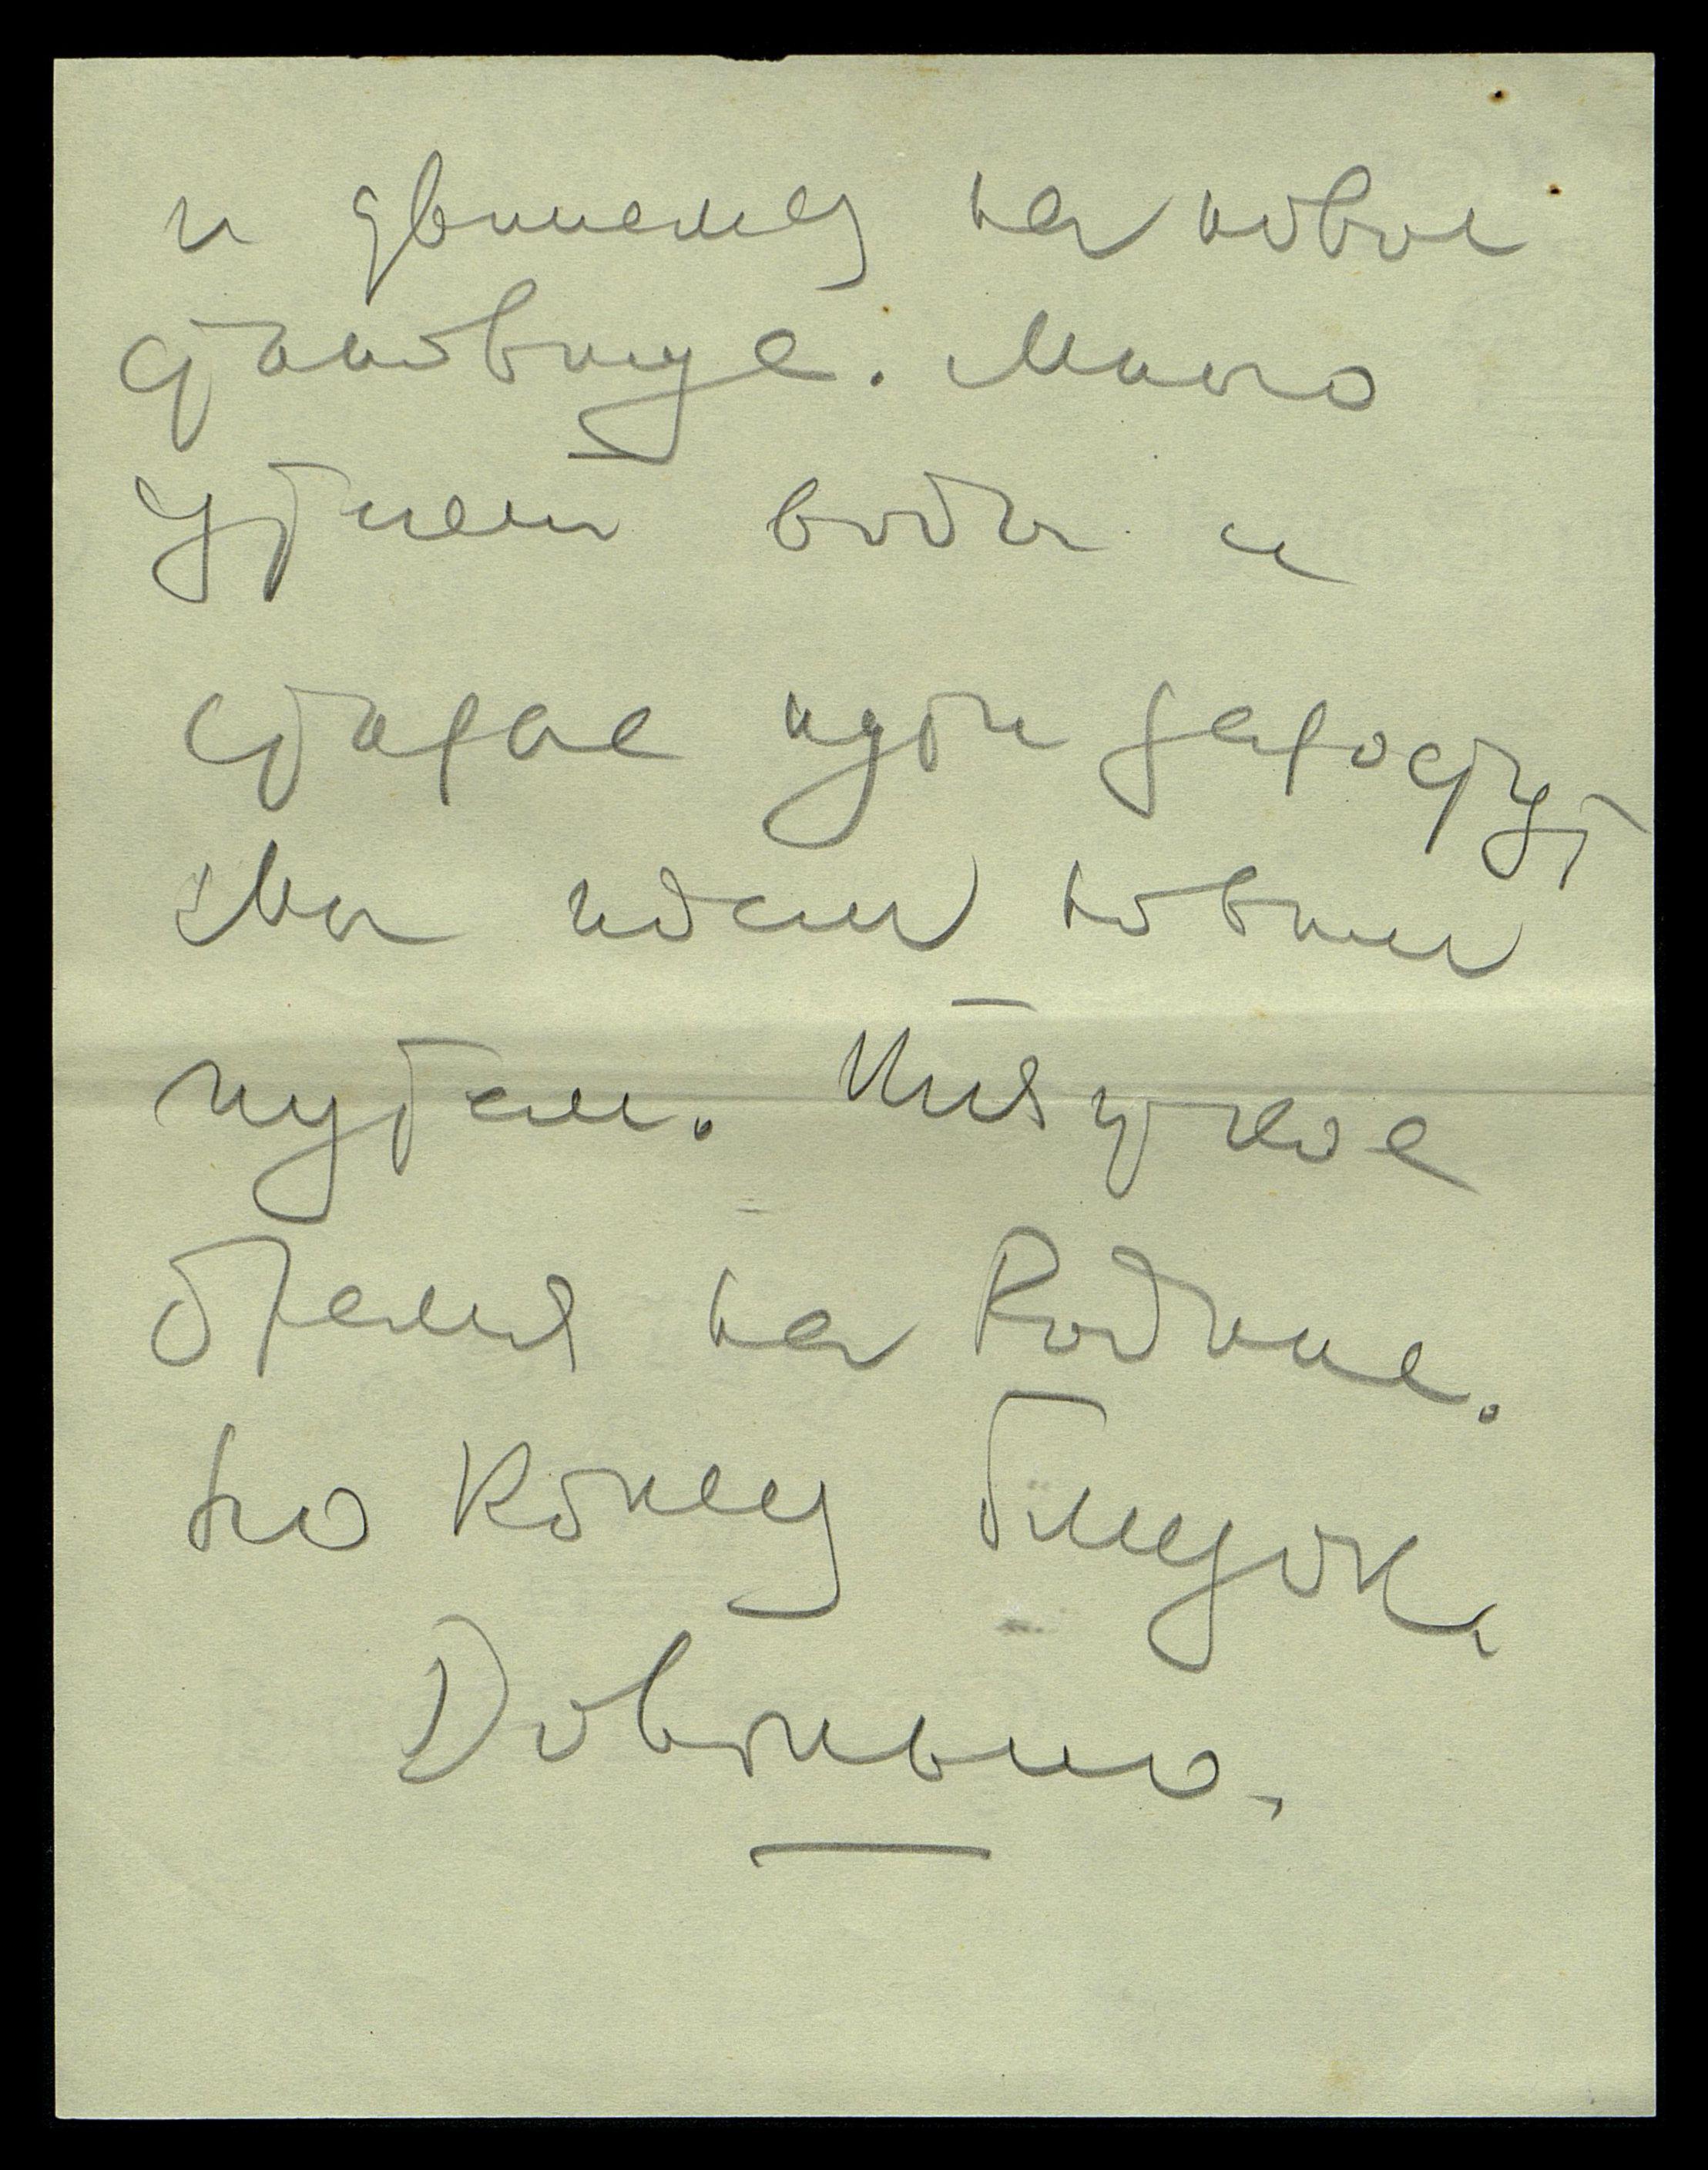 и двинемся на новое
становище. Много
утечет воды и
старые пути зарастут
Мы идем новыми
путями. Тягучее
время на Родине.
но конец близок.
Довольно.